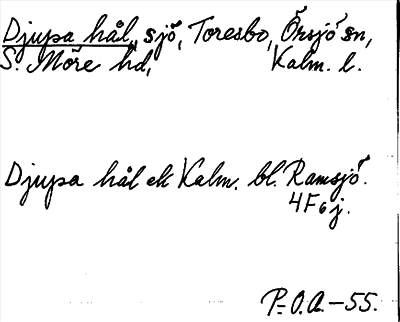 Djupa hål, sjö, Toresbo, Örsjö sn,
S. Möre hd, Kalm. l.
Djupa hål ek Kalm. bl. Ramsjö.
4F6j.
P.O.A.-55.